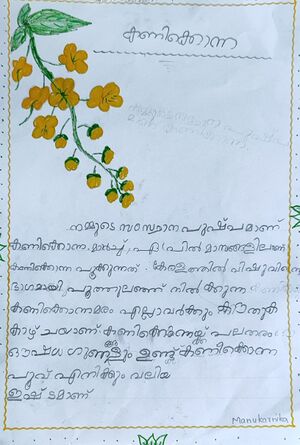 കണിക്കൊന്ന
നമ്മുടെ സംസ്ഥാന പുഷ്പമാണ്
കണിക്കൊന്ന. മാർച്ച്, ഏപ്രിൽ മാസങ്ങളിലാണ്
കണിക്കൊന്ന പൂക്കുന്നത്. കേരളത്തിൽ വിഷുവിന്റെ
ഭാഗമായി പൂത്തുലഞ്ഞ് നിൽക്കുന്ന
കണിക്കൊന്നമരം എല്ലാവർക്കും കൗതുക
കാഴ്ചയാണ്. കണിക്കൊന്നയ്ക്ക് പലതരം
ഔഷധ ഗുണങ്ങളും ഉണ്ട് കണിക്കൊന്ന
പൂവ് എനിക്കും വലിയ
ഇഷ്ടമാണ്
Manukarnika